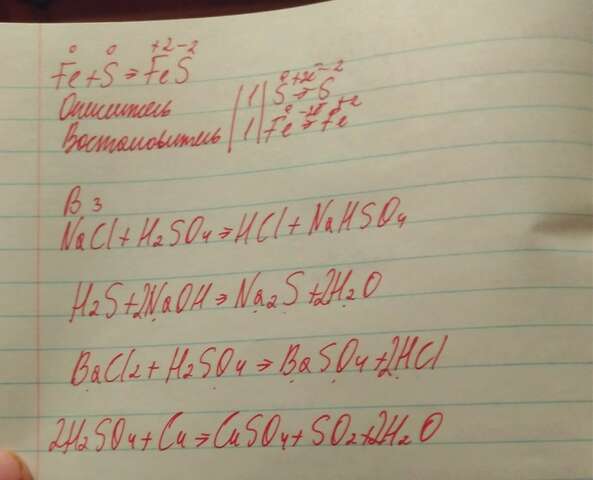 0 0 +2 -2
Fe + S → FeS
Окислитель | 1 | S⁰ +2e → S⁻²
Востановитель | 1 | Fe⁰ -2e → Fe⁺²
В 3
NaCl + H2SO4 → HCl + NaHSO4
H2S + 2NaOH → Na2S + 2H2O
BaCl2 + H2SO4 → BaSO4 + 2HCl
2H2SO4 + Cu → CuSO4 + SO2 + 2H2O